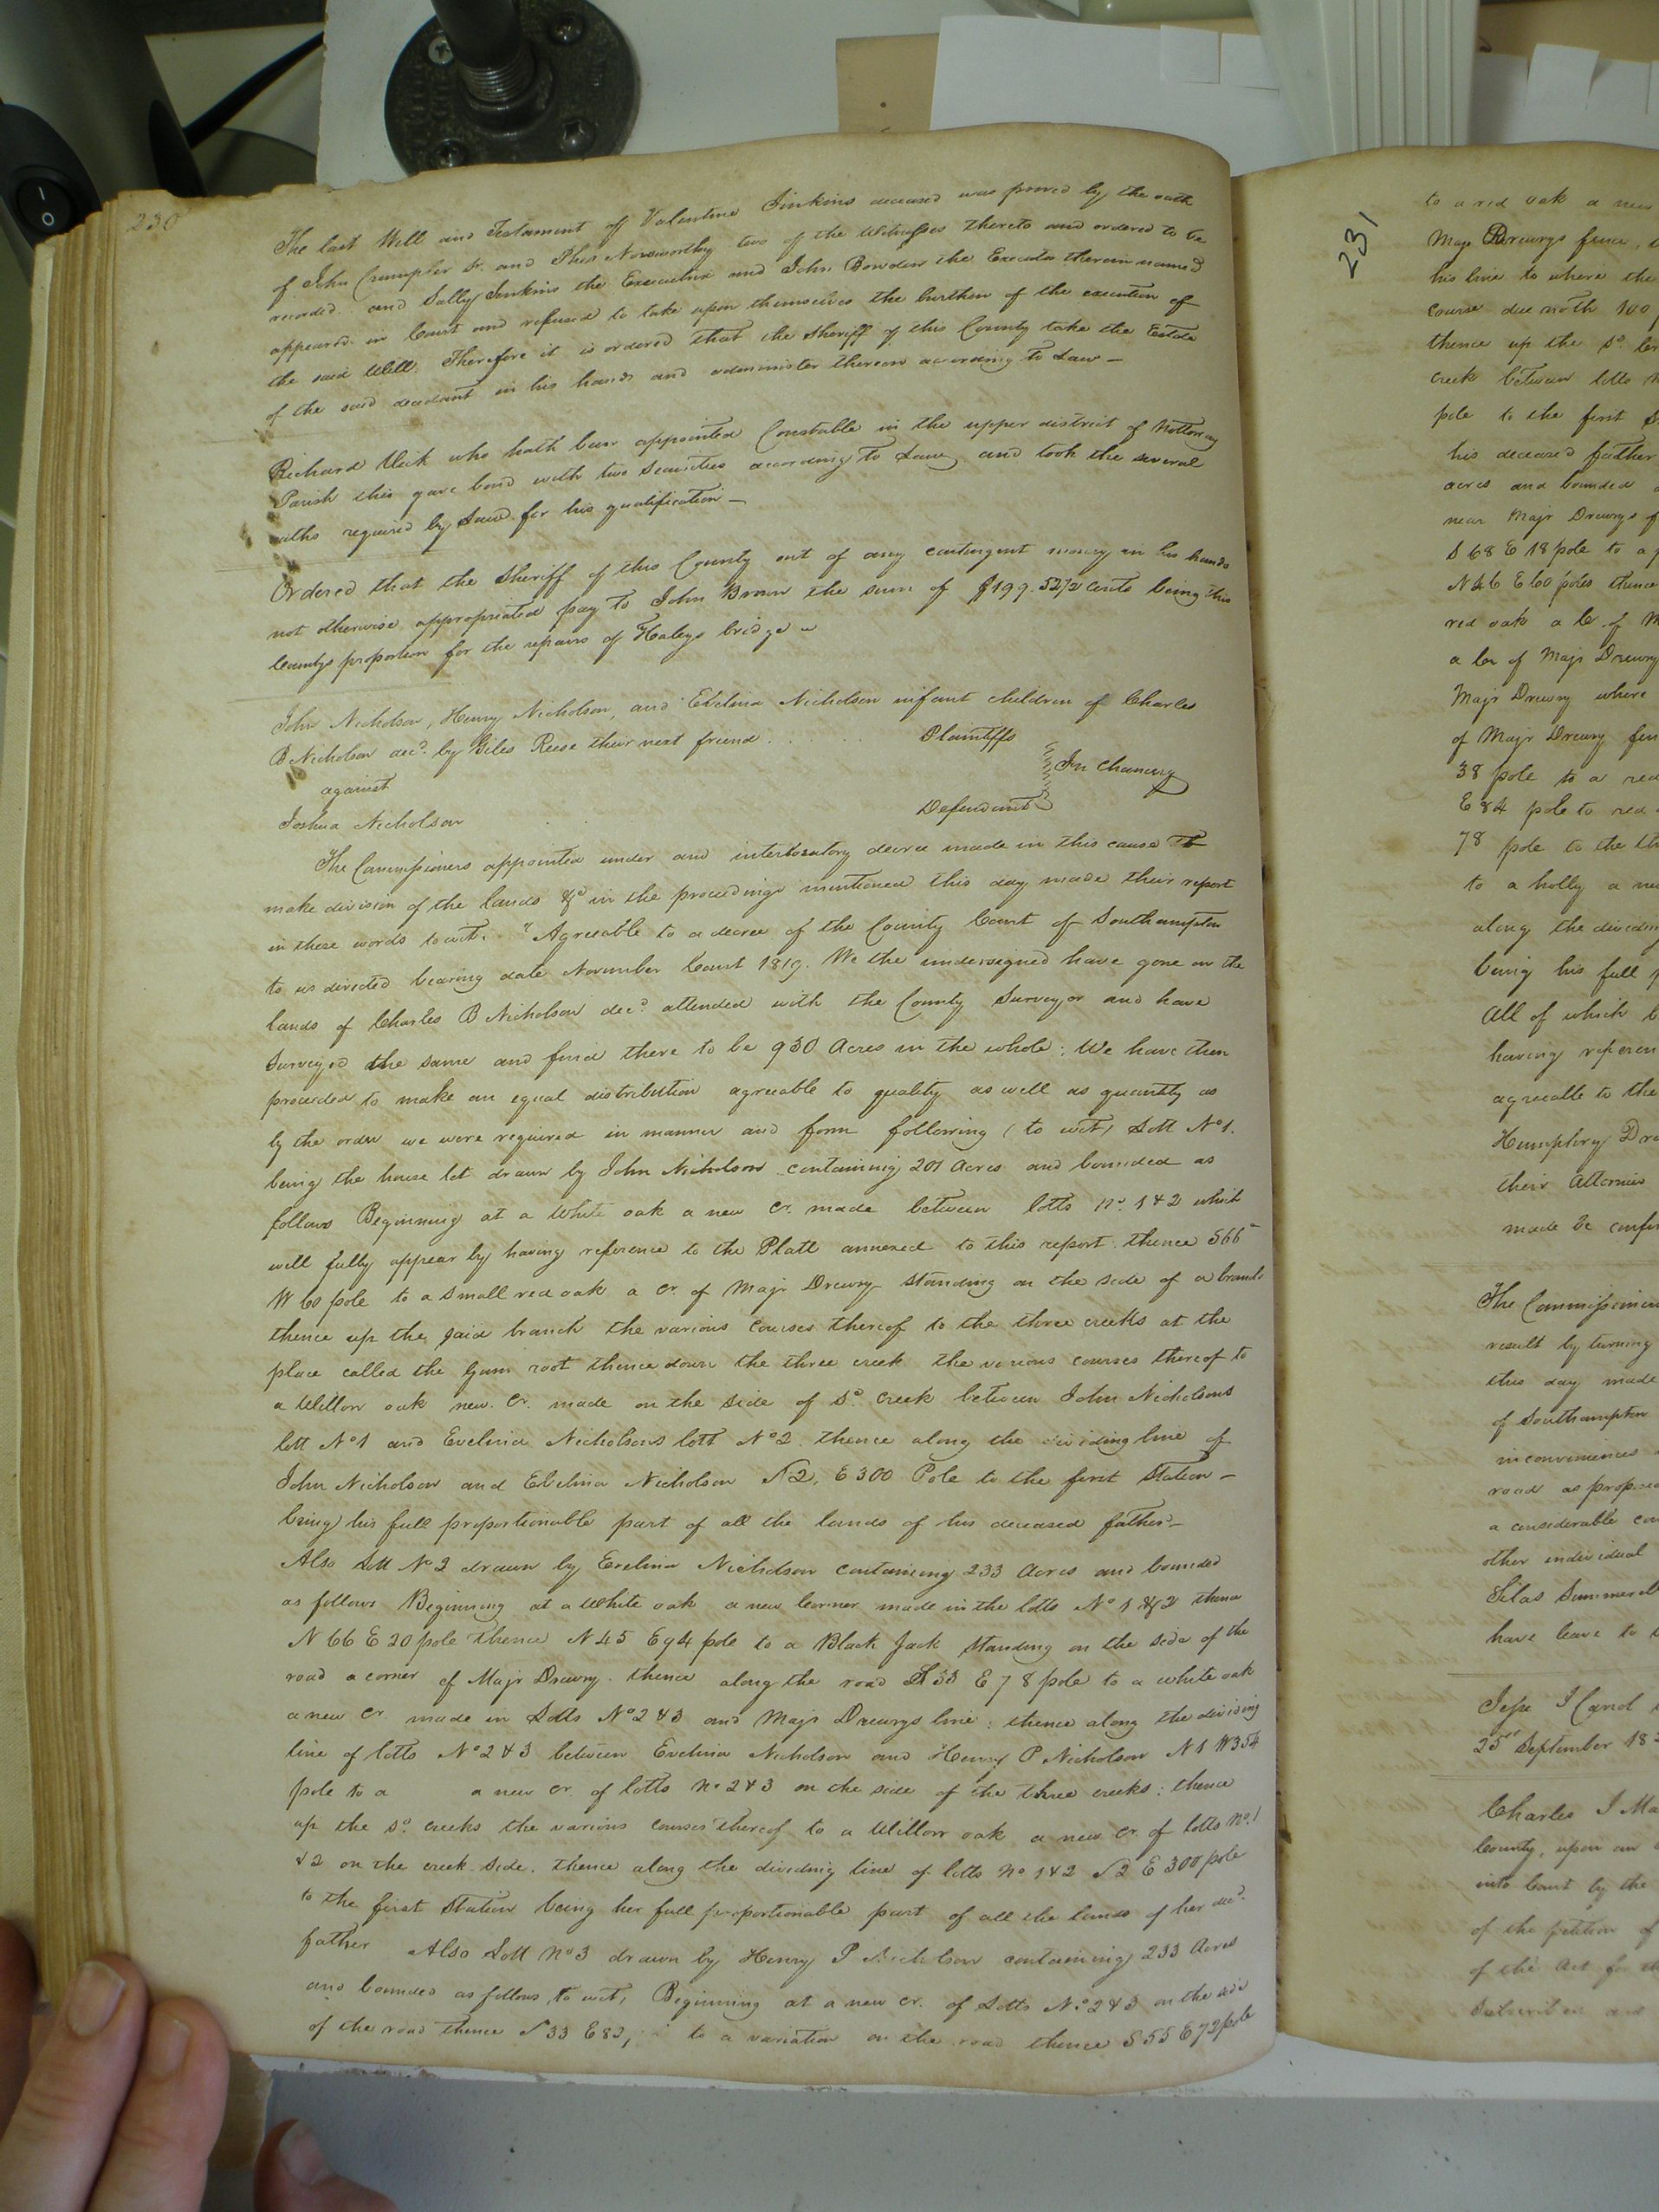 230
The last Will and Testament of Valentine Jenkins deceased was proved by the oath
of John Crumpler Sr. and Norsworthy two of the Witnesses thereto and ordered to be
recorded. and Sally Jenkins the Executrix and John Bowden the Executor therein named
appeared in Court and refused to take upon themselves the burthen of the execution of
the said Will. Therefore it is ordered that the Sheriff of this County take the Estate
of the said decedant in his hands and administer thereon according to Law —
Richard who hath been appointed Constable in the upper district of Nottoway
Parish this gave bond with two Securities according to Law and took the several
oaths required by Law for his qualification —
Ordered that the Sheriff of this County out of any contingent money in his hands
not otherwise appropriated pay to John Brown the sum of $199.52½ Cents being this
Countys proportion for the repairs of Haleys bridge
John Nicholson, Henry Nicholson, and Evelina Nicholson infant children of Charles
B Nicholson decd. by Giles Reese their next friend . . . . Plaintiffs
against
In Chancery
Joshua Nicholson Defendant
The Commissioners appointed under and interlocutory decree made in this cause To
make division of the lands &c in the proceedings mentioned this day made their report
in these words to wit. "Agreeable to a decree of the County Court of Southampton
to us directed bearing date November Court 1819. We the undersigned have gone on the
lands of Charles B Nicholson decd. attended with the County Surveyor and have
Surveyed the same and find there to be 930 Acres in the whole: We have then
proceeded to make an equal distribution agreeable to quality as well as quantity as
by the order we were required in manner and form following (to wit) Lott No 1.
being the house lot drawn by John Nicholson containing 201 Acres and bounded as
follows Beginning at a White oak a new Cr. made between lotts No. 1 & 2 which
will fully appear by having reference to the Platt annexed to this report. thence S66
W 60 pole to a small red oak a Cr. of Majr Drewry standing on the side of a branch
thence up the said branch the various Courses thereof to the three creeks at the
place called the Gum root thence down the three creek the various courses thereof to
a Willow oak new Cr. made on the side of sd. creek between John Nicholsons
lott No 1 and Evelina Nicholsons lott No 2. thence along the dividing line of
John Nicholson and Evelina Nicholson S 2. E 300 Pole to the first Station —
being his full proportionable part of all the lands of his deceased father —
Also Lott No 2 drawn by Evelina Nicholson containing 233 Acres and bounded
as follows Beginning at a White oak a new Corner made in the lotts No 1 & 2 thence
N 66 E 20 pole thence N 45 E 94 pole to a Black Jack standing on the side of the
road a corner of Majr Drewry. thence along the road S 33 E 78 pole to a white oak
a new Cr. made in Lotts No 2 & 3 and Majr Drewrys line: thence along the dividing
line of lotts No 2 & 3 between Evelina Nicholson and Henry P Nicholson N 1 W 354
pole to a a new Cr. of lotts No 2 & 3 on the side of the three creeks: thence
up the sd. creeks the various courses thereof to a Willow oak a new Cr. of lotts No. 1
& 2 on the creek side. thence along the dividing line of lotts No 1 & 2 S 2 E 300 pole
to the first Station being her full proportionable part of all the lands of her decd.
father Also Lott No 3 drawn by Henry P Nicholson containing 233 Acres
and bounded as follows, to wit, Beginning at a new Cr. of Lotts No 2 & 3 on the side
of the road thence S 33 E 82 to a variation on the road thence S 55 E 72 pole
231
to a red oak a new
Majr Drewrys fence,
his line to where the
course due north 100
thence up the sd.
creek between lotts
pole to the first
his deceased father
acres and bounded
near Majr Drewrys
S 68 E 18 pole to a
N 46 E 60 poles thence
red oak a Cr. of
a Cor of Majr Drewry
Majr Drewry where
of Majr Drewry
38 pole to a red
E 84 pole to red
78 pole to the
to a holly a new
along the dividing
being his full
All of which
having referen
agreeable to the
Humphry
their Attornies
made be confir
The Commissioners
result by turning
this day made
of Southampton
inconveniences
road as proposed
a considerable
other individual
Silas Summerell
have leave to
Jesse
25 September 18
Charles J
County, upon an
into Court by the
of the petition of
of the Act for